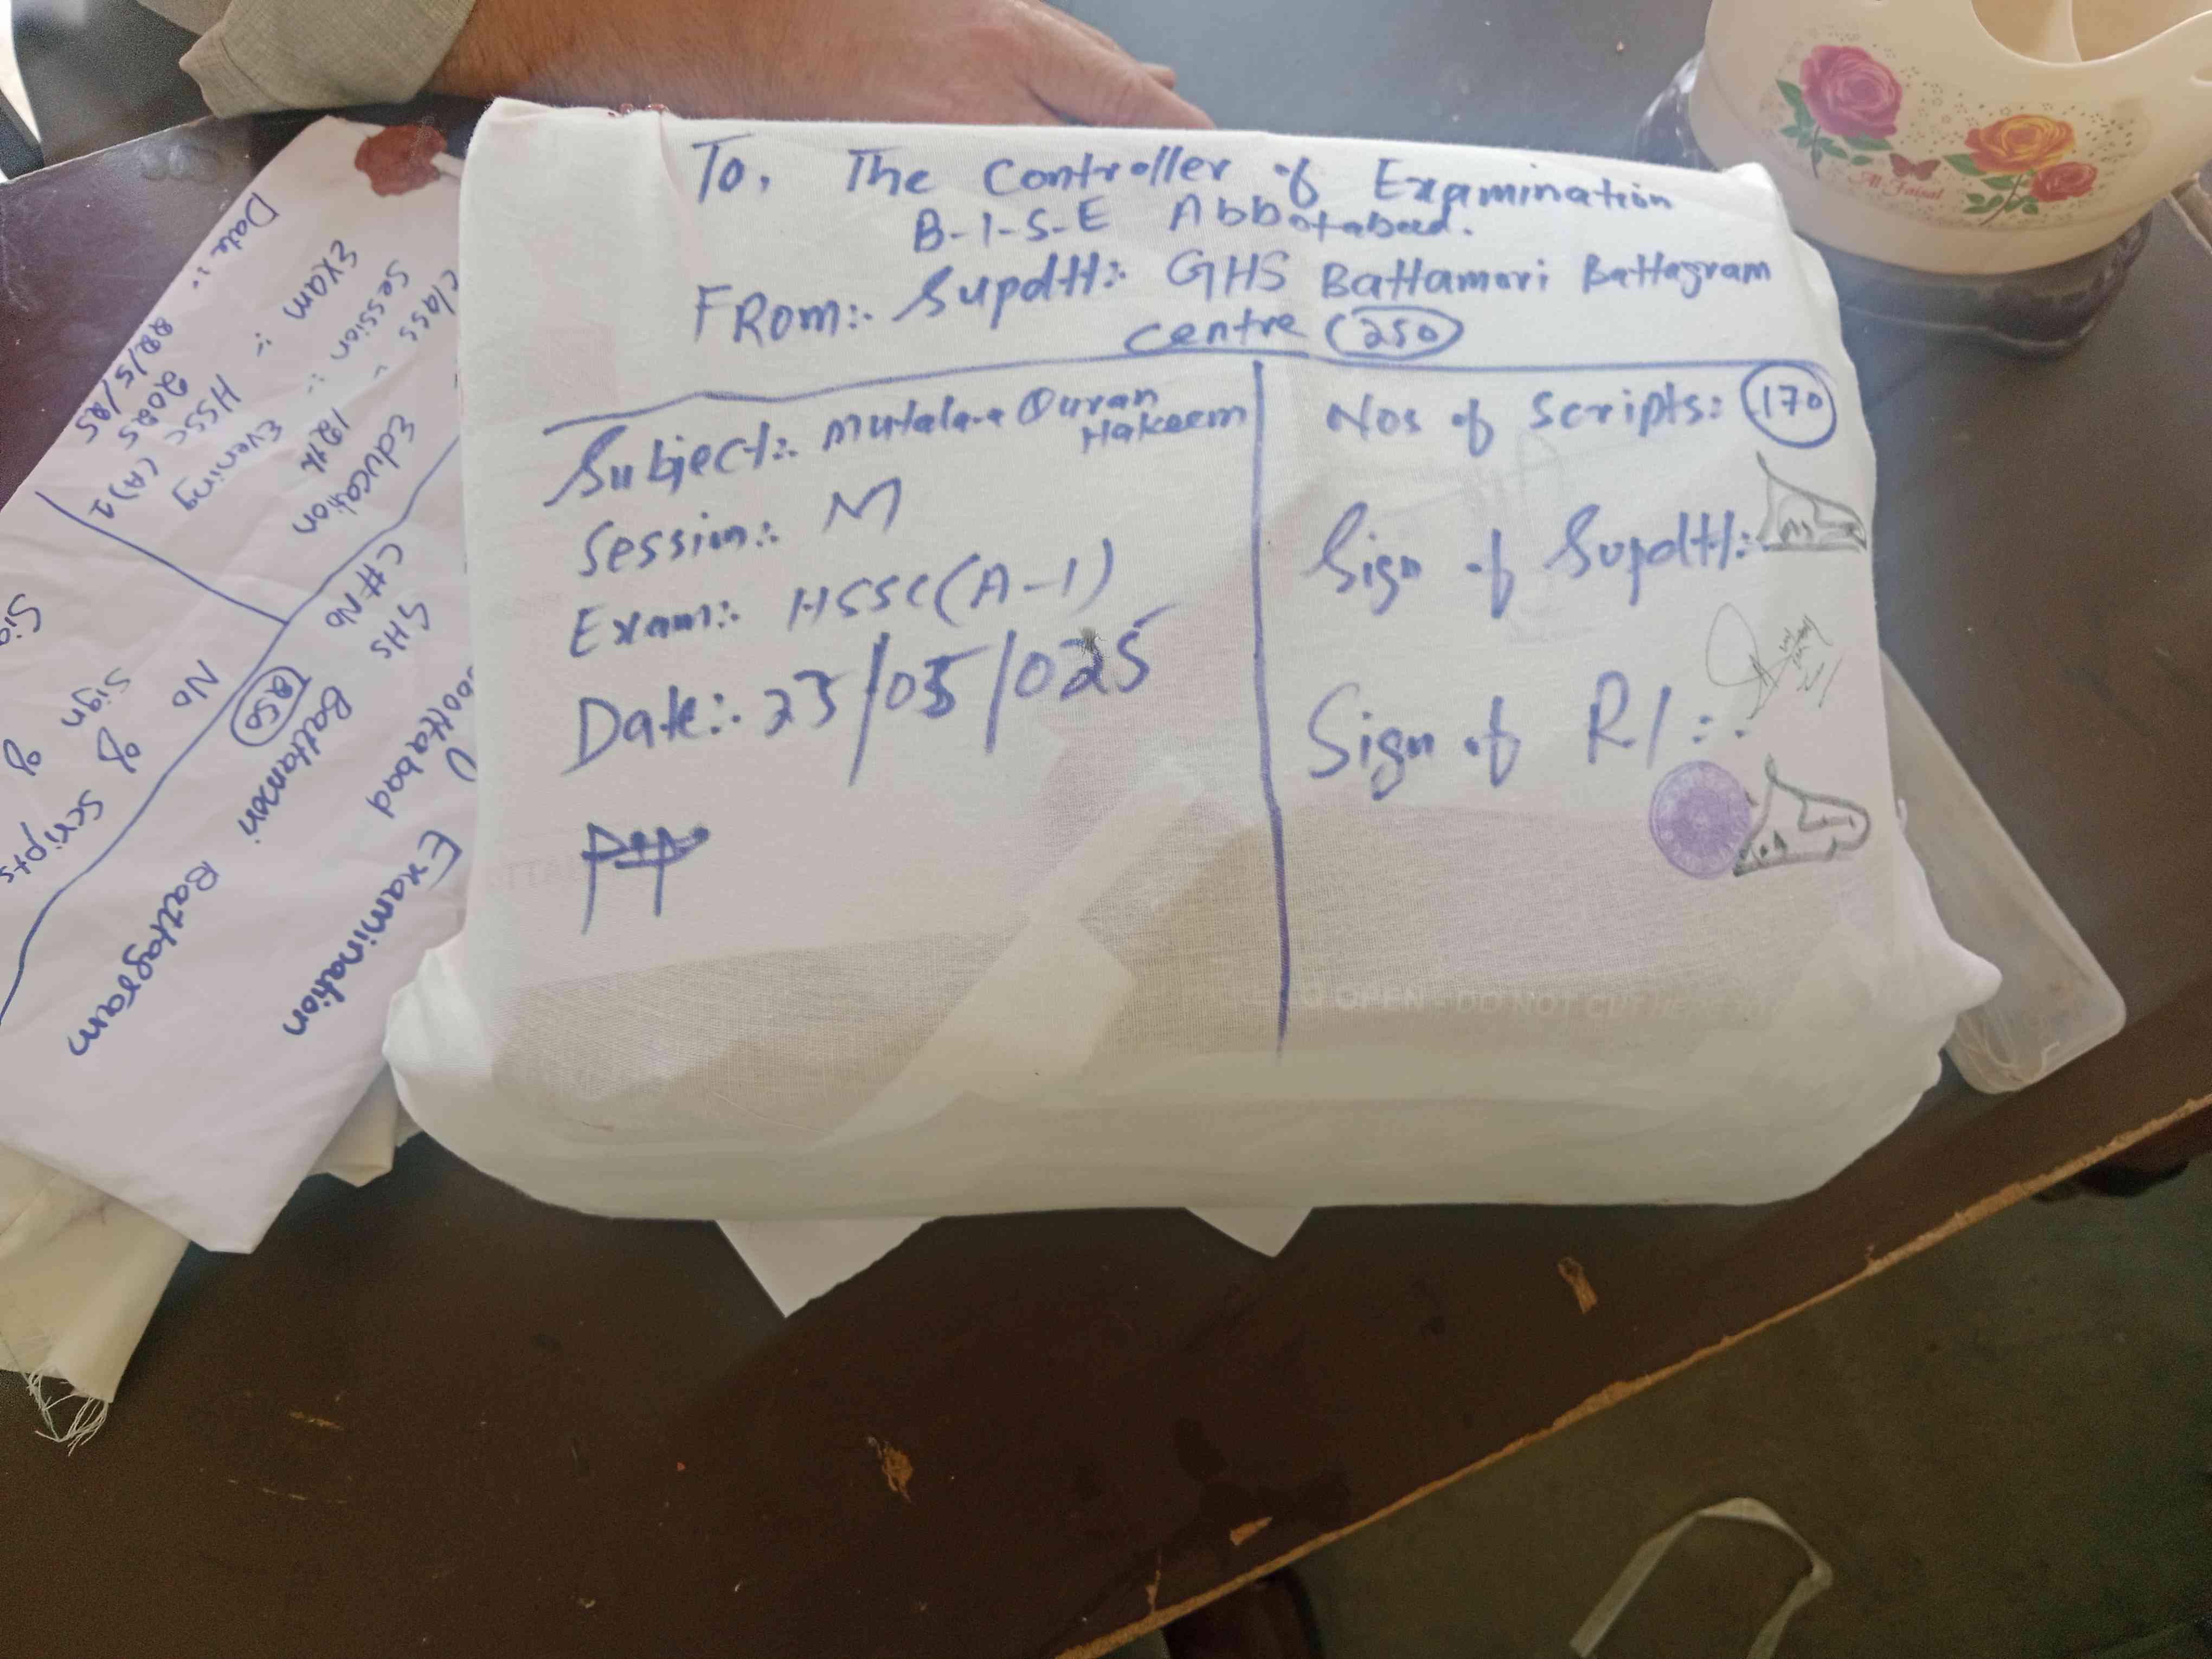 To, The Controller of Examination
B-I-S-E Abbotabad.
FROM:. Supdtt:. GHS Battamori Battagram
centre (250)
Subject:. Mutala-e Quran
Hakeem
Session:. M
Exam:. HSSC (A-1)
Date:. 23/05/025
Nos of Scripts: 170
Sign of Supdtt:.
Sign of R/I:.
OPEN - DO NOT CUT HERE TO
Date:. 22/5/25
Exam :. HSSC (A) 2025
Session :. Evening
Class 12th
Education
C#No 250
GHS Battamori Battagram
Abbottabad
Examination
No of Scripts
Sign of
Al Faisal